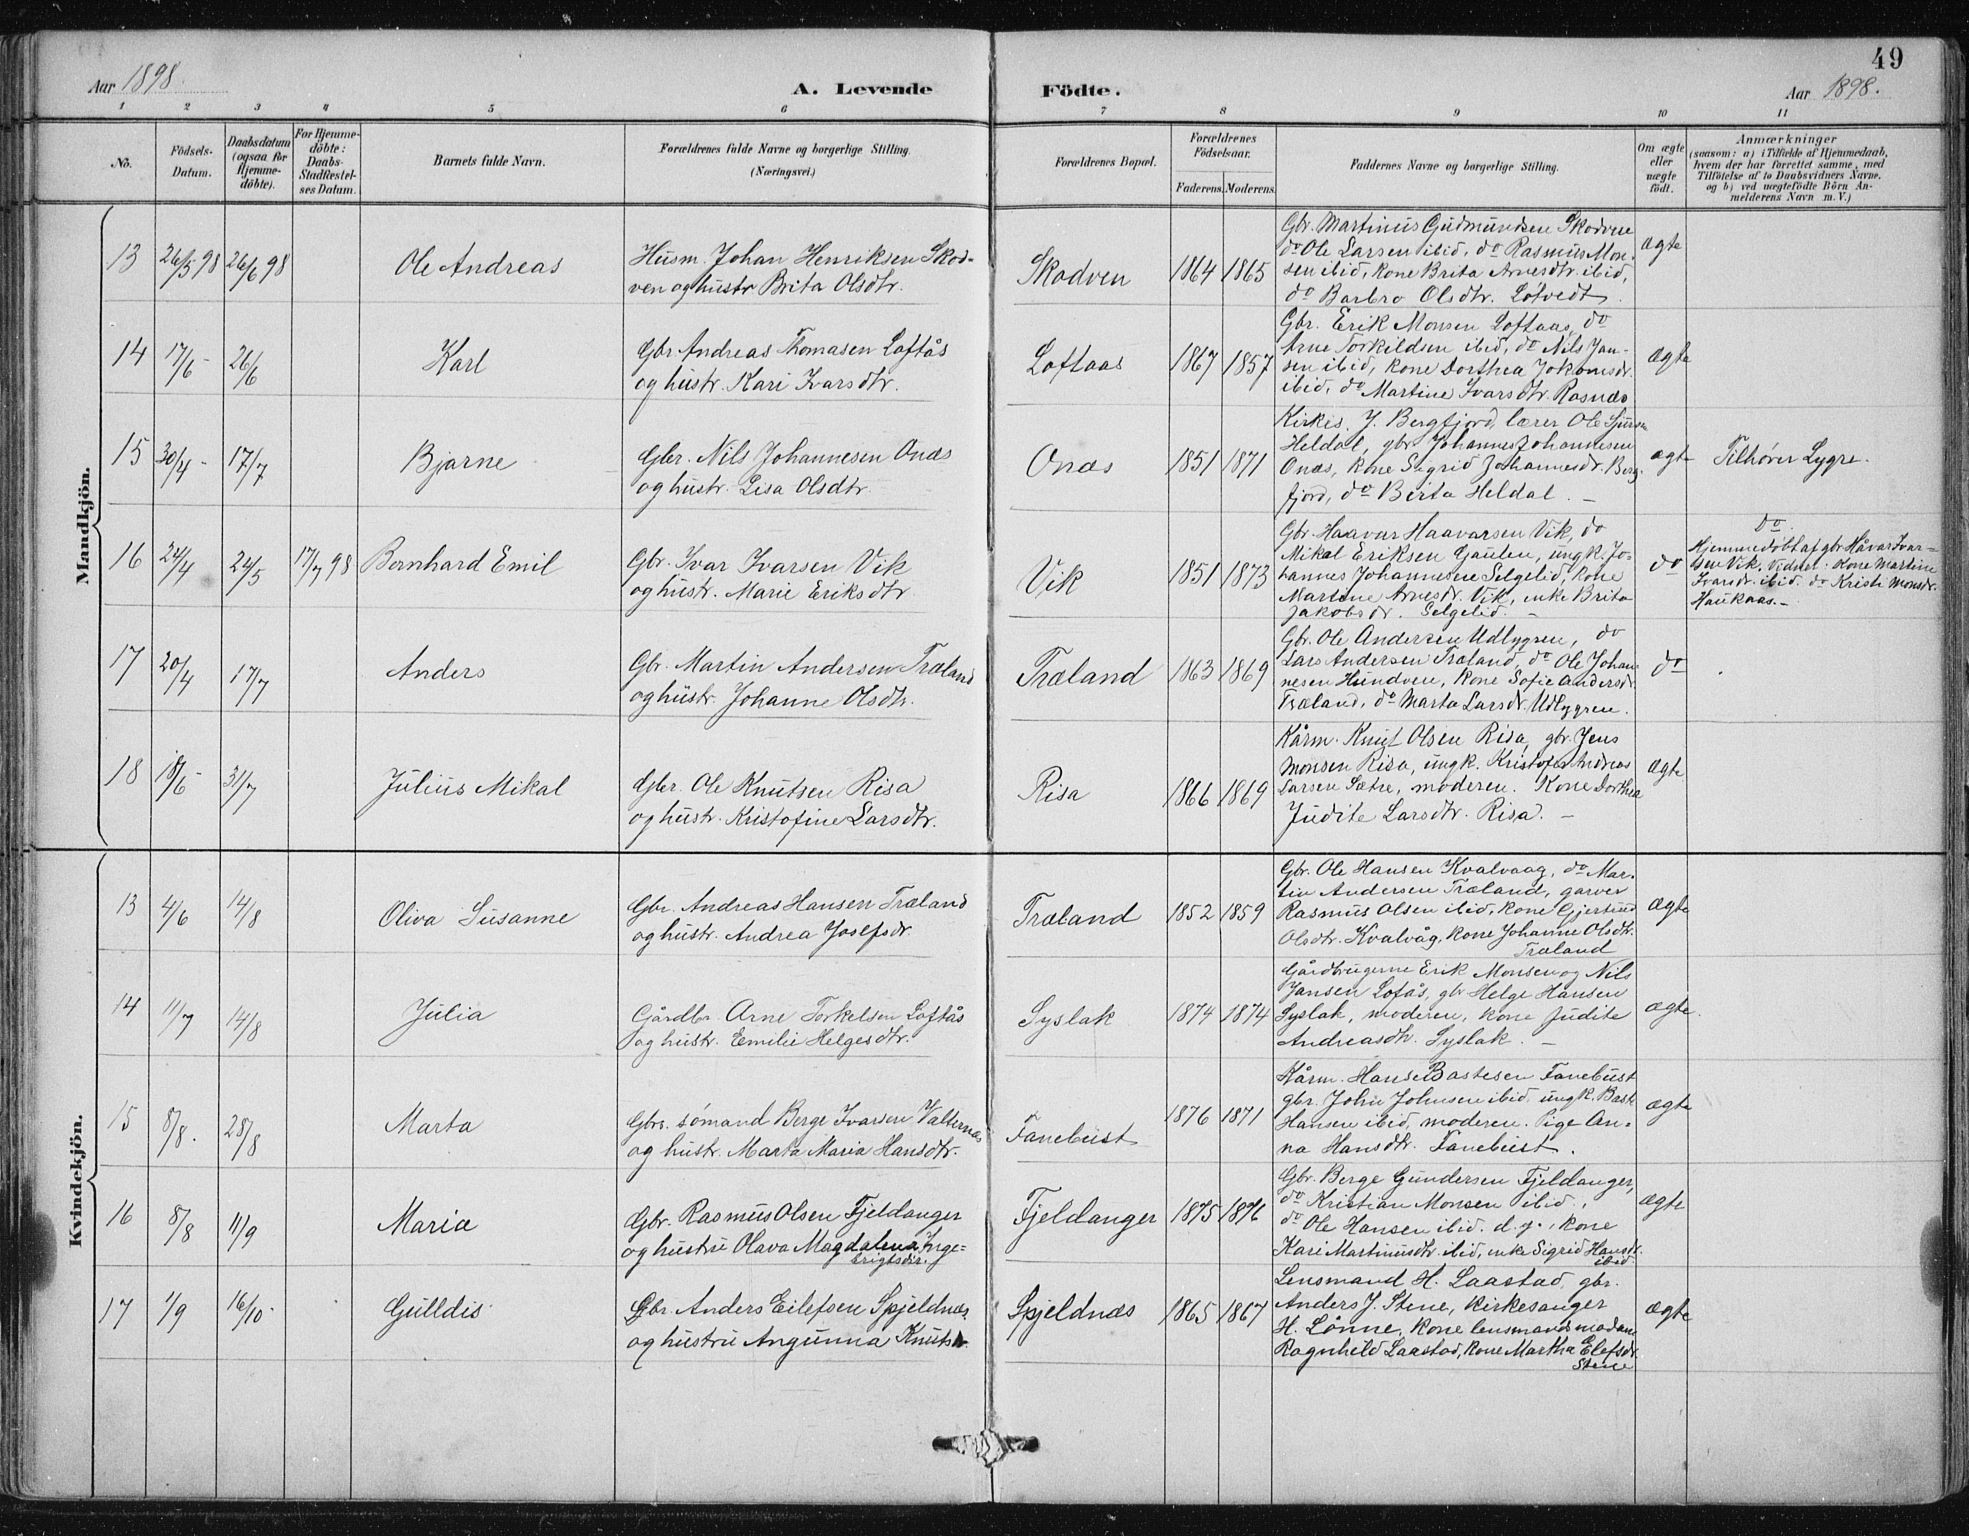 49
Aar 1898.
A. Levende
Födte.
Aar 1898.
1 2 3 4 5 6 7 8 9 10 11
No.
Födsels-
Datum.
Daabsdatum
(ogsaa for
Hjemme-
döbte).
For Hjemme-
döbte:
Daabs-
Stadfæstel-
ses Datum.
Barnets fulde Navn.
Forældrenes fulde Navne og borgerlige Stilling
(Næringsvei.)
Forældrenes Bopæl.
Forældrenes
Födselsaar.
Faderens. Moderens.
Faddernes Navne og borgerlige Stilling.
Om ægte
eller
uægte
födt.
Anmærkninger
(saasom: a) i Tilfælde af Hjemmedaab,
hvem der har forrettet samme, med
Tilföielse af to Daabsvidners Navne.
og b) ved uægtefödte Börn An-
melderens Navn m.V.)
Mandkjön.
13 26/5 98 26/6 98 Ole Andreas
Husm. Johan Henriksen Skod-
ven og hustr Brita Olsdtr.
Skodven 1864 1865
Gbr. Martinus Gudmundsen Skodven
do Ole Larsen ibid, do Rasmus Mon-
sen ibid, kone Brita Arnesdtr. ibid,
do Barbro Olsdtr. Løtvedt.
ægte
14 17/6 - 26/6 Karl
Gbr Andreas Thomasen Loftås
og hustr. Kari Ivarsdtr.
Loftaas 1867 1857
Gbr. Erik Monsen Loftaas, do
Arne Torkildsen ibid, do Nils Jan-
sen ibid, kone Dorthea Jokumsdr.
ibid, do Martine Ivarsdtr. Rosnæs
ægte
15 30/4 - 17/7 Bjarne
Gbr. Nils Johannesen Onæs
og hustr. Lisa Olsdtr.
Onæs 1851 1871
Kirkes. J. Bergfjord, lærer Ole Sjurs.
Heldal, gbr. Johannes Johannesen
Onæs, kone Sigrid Johannesdr. Berg-
fjord, do Birta Heldal. -
ægte
Tilhører Lygre.
16 24/4 24/5 17/7 98 Bernhard Emil
Gbr. Ivar Ivarsen Vik
og hustr. Marie Eriksdtr.
Vik 1851 1873
Gbr. Haavar Haavarsen Vik, do
Mikal Eriksen Gaulen, ungk. Jo-
hannes Johannesen Selgelid, kone
Martine Arnesdr. Vik, enke Brita
Jakobsdr. Selgelid. -
do
do.
Hjemmedøbt af gbr Håvar Ivar-
sen Vik. Vidner: Kone Martine
Ivarsdr. ibid. do Kristi Monsdr.
Haukaas. -
17 20/4 17/7 Anders
Gbr. Martin Andersen Træland
og hustr. Johanne Olsdtr.
Træland 1863 1869
Gbr. Ole Andersen Udlygren, do
Lars Andersen Træland, do Ole Johan-
nesen Hundven, kone Sofie Andersdr.
Træland, do Marta Larsdr. Udlygren.
do
18 18/6 - 31/7 Julius Mikal
Gbr. Ole Knutsen Risa
og hustr. Kristofine Larsdtr.
Risa 1866 1869
Kårm. Knut Olsen Risa, gbr. Jens
Monsen Risa, ungk. Kristofer Andreas
Larsen Sætre, moderen. Kone Dorthea
Judite Larsdtr. Risa. -
ægte
Kvindekjön.
13 4/6 14/8 Oliva Susanne
Gbr. Andreas Hansen Træland
og hustr. Andrea Josefsdr.
Træland 1852 1859
Gbr. Ole Hansen Kvalvaag, do Mar-
tin Andersen Træland, garver
Rasmus Olsen ibid, kone Gjertrud
Olsdtr. Kvalvåg, kone Johanne Olsdtr.
Træland
ægte
14 11/7 14/8 Julia
Gårdbr. Arne Torkelsen Loftås
og hustr. Emilie Helgesdtr.
Syslak 1874 1874
Gårdbrugerne Erik Monsen og Nils
Jansen Lofås, gbr Helge Hansen
Syslak, moderen, kone Judite
Andreasdtr. Syslak. -
ægte.
15 8/8. 28/8 Marta
Gbrs. sømand Berge Ivarsen Valternes
og hustr. Marta Maria Hansdtr.
Fanebust 1876 1871
Kårm. Hans Bastesen Fanebust
gbr. John Johnsen ibid. ungk. Bast
Hansen ibid, moderen. Pige An-
na Hansdtr. Fanebust.
ægte
16 8/8 11/9 Maria
Gbr. Rasmus Olsen Fjeldanger
og hustru Olava Magdalena Inge-
brigtsdtr.
Fjeldanger 1875 1876
Gbr. Berge Gundersen Fjeldanger,
do Kristian Monsen ibid.,
do Ole Hansen ibid. d.y., kone
Kari Martinusdtr. ibid, enke Sigrid Hansdr.
ibid
ægte
17 1/9 16/10 Gulldis
Gbr. Anders Eilefsen Spjeldnæs
og hustru Angunna Knutsdr.
Spjeldnæs 1865 1867
Lensmand H. Laastad, gbr.
Anders J. Stene, kirkesanger
H. Lønne, kone lensmandsmadam
Ragnhild Laastad, kone Martha Elefsdr.
Stene
ægte